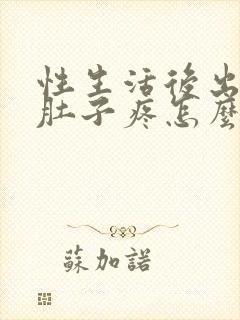 性生活後出
肚子疼怎麼
蘇加諾